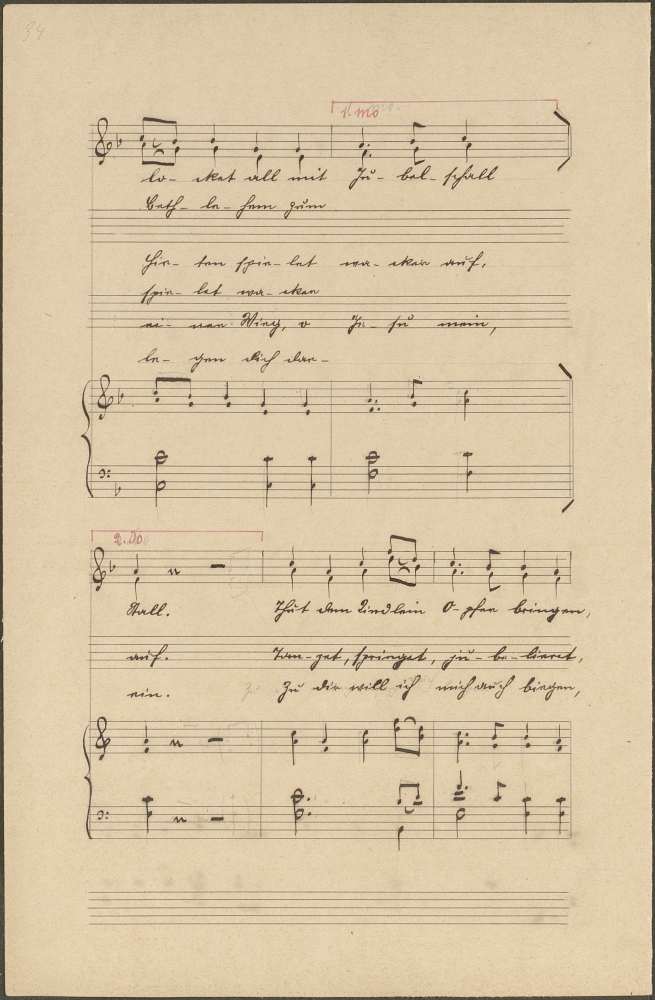 34
1mo
lo- cket all mit Ju- bel- schall
Beth- le- hem zum
Hir- ten spie- let wa- cker auf,
spie- let wa- cker
ei- ner Wieg, o Je- su mein,
le- gen dich dar-
2.do
Stall. Thut dem Kindlein O- pfer bringen,
auf. Tan- zet, springet, ju- be- lieret,
ein. Zu dir will ich mich auch biegen,